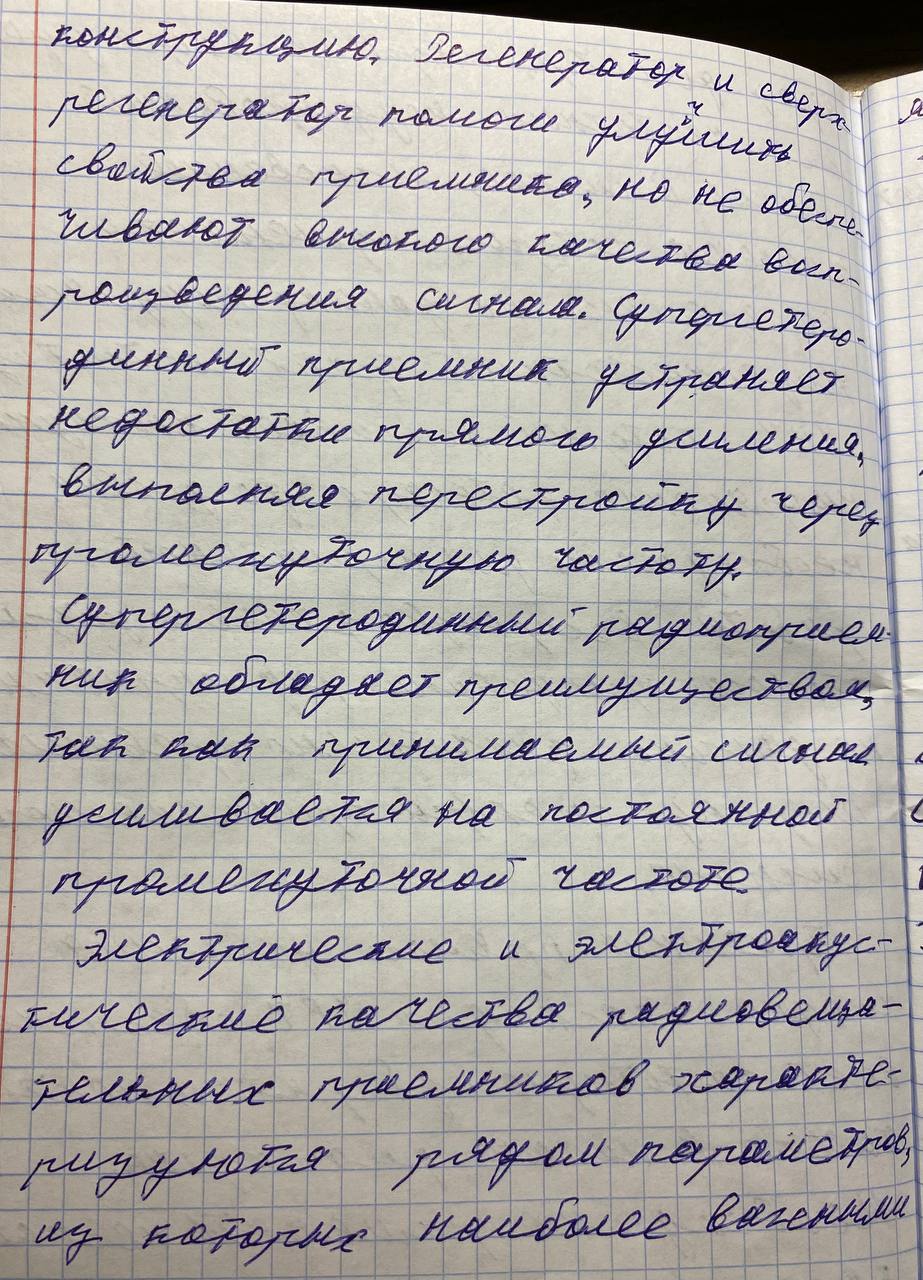 конструкцию. Регенератор и сверх-
регенератор помоги улучшить
свойства приемника, но не обеспе-
чивают высокого качества восп-
роизведения сигнала. Супергетеро-
динный приемник устраняет
недостатки прямого усиления,
выполняя перестройку через
промежуточную частоту.
Супергетеродинный радиоприем-
ник обладает преимуществом,
так как принимаемый сигнал
усиливается на постоянной
промежуточной частоте
Электрические и электроакус-
тические качества радиовеща-
тельных приемников характе-
ризуются рядом параметров,
из которых наиболее важными